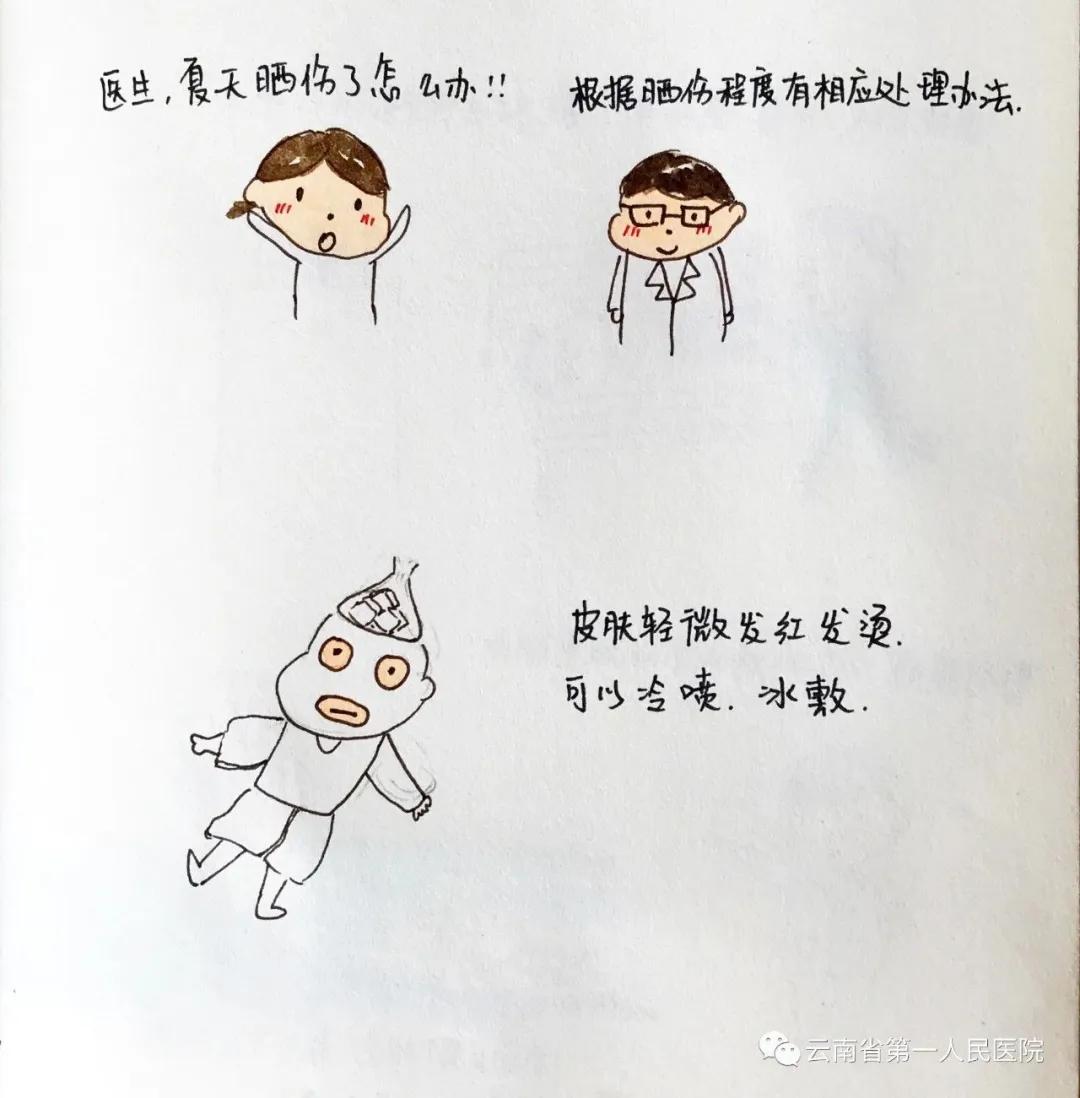 医生,夏天晒伤了怎么办!!
根据晒伤程度有相应处理办法.
皮肤轻微发红发烫.
可以冷喷.冰敷.
云南省第一人民医院